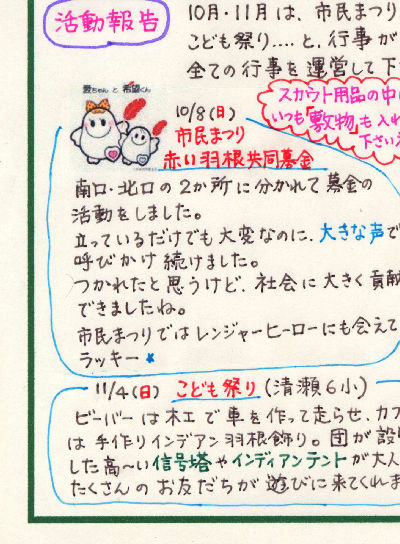 活動報告
10月・11月は、市民まつり
こども祭り....と、行事が
全ての行事を運営して下
スカウト用品の中
いつも「敷物」も入れ
下さい
愛ちゃん と 希望くん
10/8(日)
市民まつり
赤い羽根共同募金
南口・北口の2か所に分かれて募金の
活動をしました。
立っているだけでも大変なのに、大きな声で
呼びかけ続けました。
つかれたと思うけど、社会に大きく貢献
できましたね。
市民まつりではレンジャーヒーローにも会えて
ラッキー★
11/4(日) こども祭り(清瀬6小)
ビーバーは木工で車を作って走らせ、カブ
は手作りインデアン羽根飾り。団が設
した高〜い信号塔やインディアンテントが大人
たくさんのお友だちが遊びに来てくれま